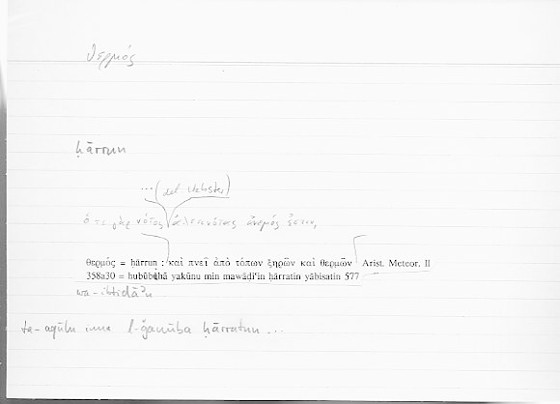 θερμός
ḥārrun
...(def
ὅ νότος ἄνεμός ἐστιν,
θερμός = ḥārrun : καὶ πνεῖ ἀπὸ τόπων ξηρῶν καὶ θερμῶν Arist. Meteor. II
358a30 = hubūbuhā yakūnu min mawāḍiʿin ḥārratin yābisatin 577
wa-ibtidāʾu
fa-aqūlu inna l-ǧanūba ḥārratun ...